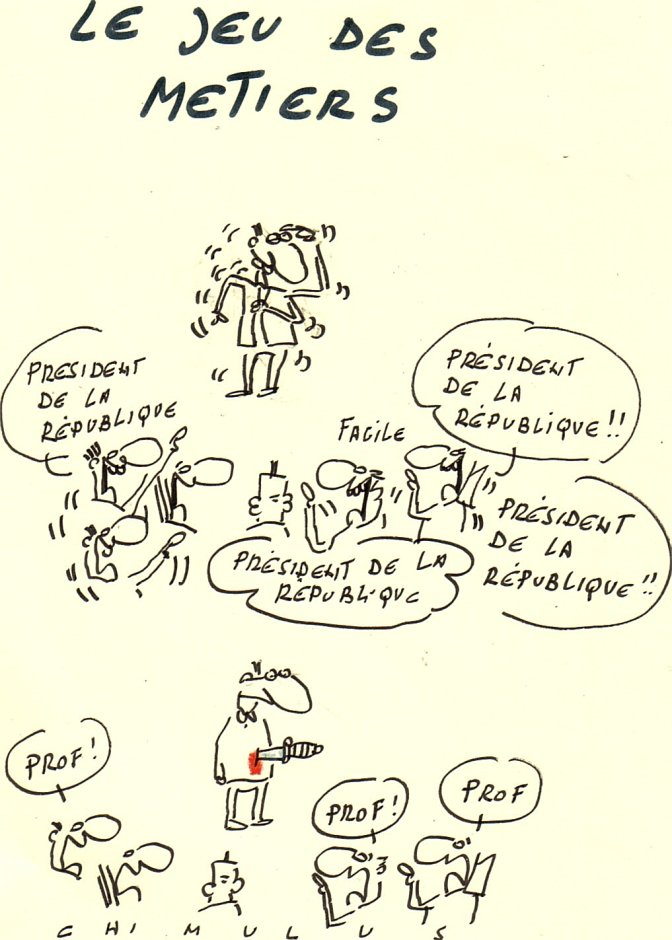 LE JEU DES
METIERS
PRESIDENT
DE LA
RÉPUBLIQUE
FACILE
PRÉSIDENT
DE LA
RÉPUBLIQUE !!
PRÉSIDENT DE LA
RÉPUBLIQUE
PRÉSIDENT
DE LA
RÉPUBLIQUE !!
PROF !
PROF !
PROF
CHIMULUS